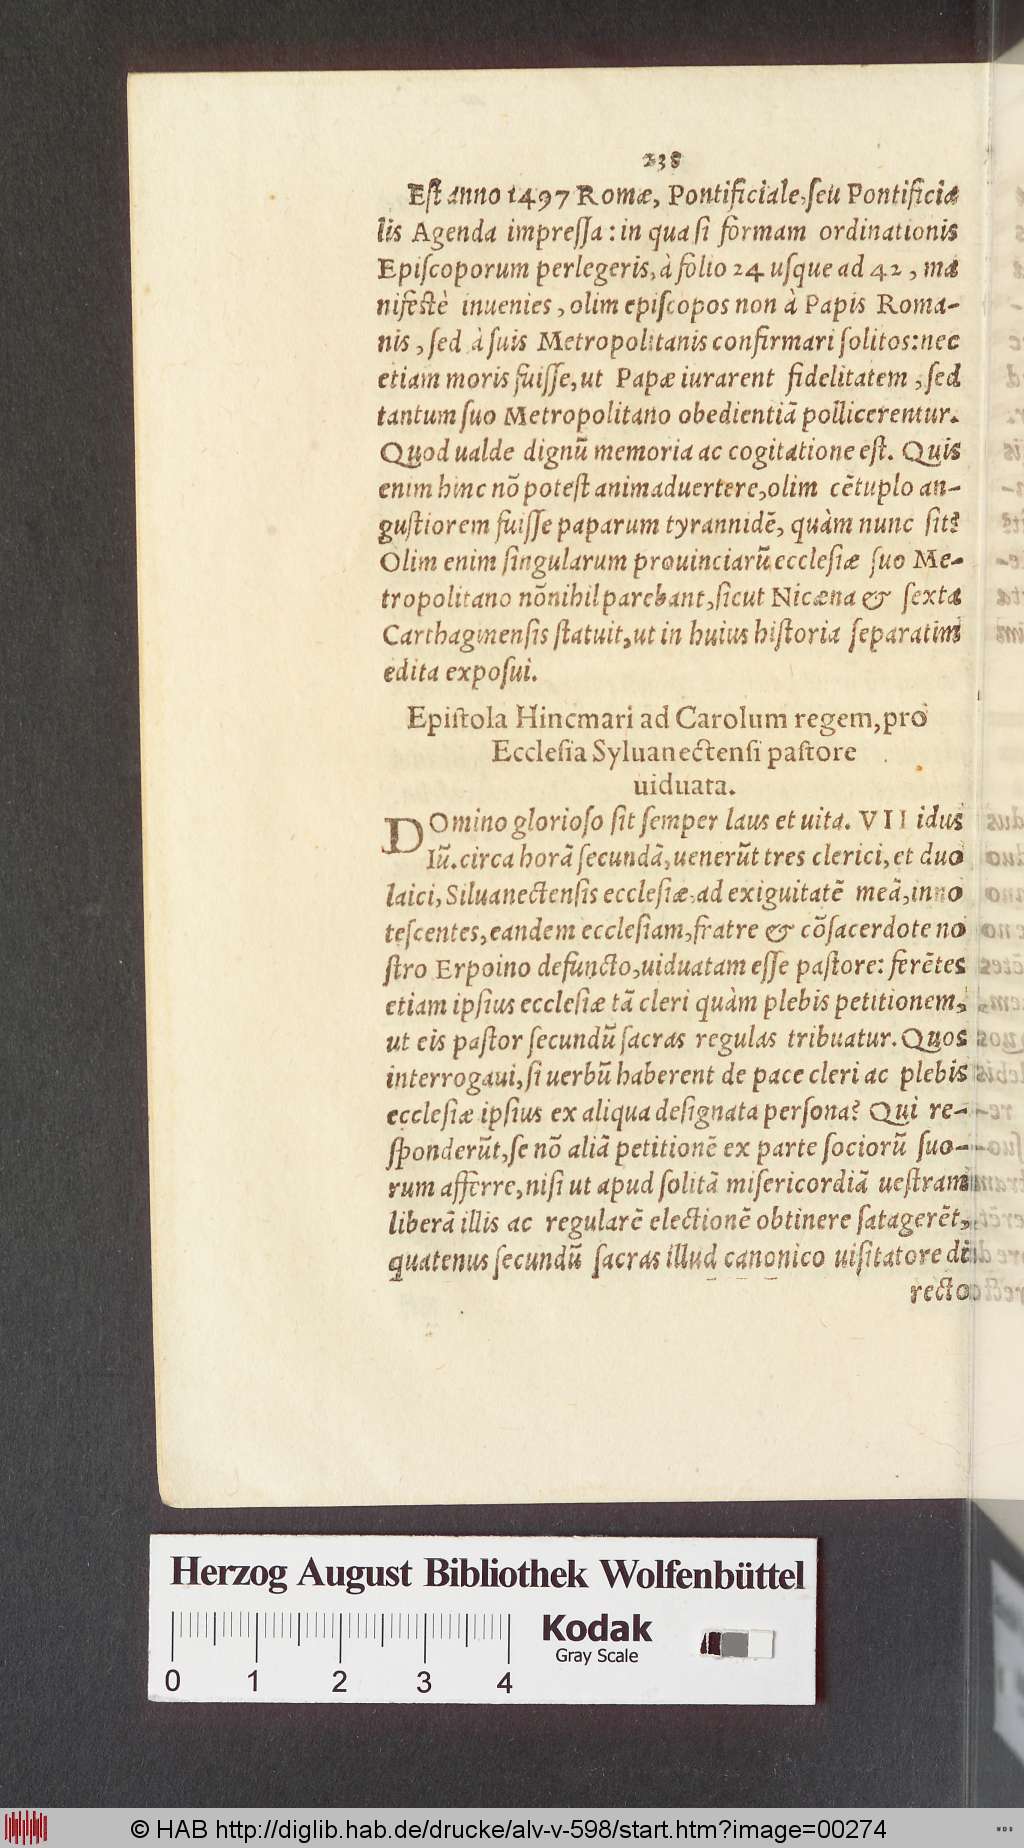 238
Eſt anno 1497 Romæ, Pontificiale, ſeu Pontificia
lis Agenda impreſſa: in qua ſi formam ordinationis
Epiſcoporum perlegeris, à folio 24 uſque ad 42, ma
nifeſtè inuenies, olim epiſcopos non à Papis Roma-
nis, ſed à ſuis Metropolitanis confirmari ſolitos: nec
etiam moris fuiſſe, ut Papæ iurarent fidelitatem, ſed
tantum ſuo Metropolitano obedientiã pollicerentur.
Quod ualde dignũ memoria ac cogitatione eſt. Quis
enim hinc nõ poteſt animaduertere, olim cẽtuplo an-
guſtiorem fuiſſe paparum tyrannidẽ, quàm nunc ſit?
Olim enim ſingularum prouinciarũ eccleſiæ ſuo Me-
tropolitano nõnihil parebant, ſicut Nicæna & ſexta
Carthaginenſis ſtatuit, ut in huius hiſtoria ſeparatim
edita expoſui.
Epiſtola Hincmari ad Carolum regem, pro
Eccleſia Syluanectenſi paſtore
uiduata.
DOmino glorioſo ſit ſemper laus et uita. VII idus
Iũ. circa horã ſecundã, uenerũt tres clerici, et duo
laici, Siluanectenſis eccleſiæ, ad exiguitatẽ meã, inno
teſcentes, eandem eccleſiam, fratre & cõſacerdote no
ſtro Erpoino defuncto, uiduatam eſſe paſtore: ferẽtes
etiam ipſius eccleſiæ tã cleri quàm plebis petitionem,
ut eis paſtor ſecundũ ſacras regulas tribuatur. Quos
interrogaui, ſi uerbũ haberent de pace cleri ac plebis
eccleſiæ ipſius ex aliqua deſignata perſona? Qui re-
ſponderũt, ſe nõ aliã petitionẽ ex parte ſociorũ ſuo-
rum afferre, niſi ut apud ſolitã miſericordiã ueſtram
liberã illis ac regularẽ electionẽ obtinere ſatagerẽt,
quatenus ſecundũ ſacras illud canonico uiſitatore di
recto
Herzog August Bibliothek Wolfenbüttel
0 1 2 3 4
Kodak
Gray Scale
© HAB http://diglib.hab.de/drucke/alv-v-598/start.htm?image=00274